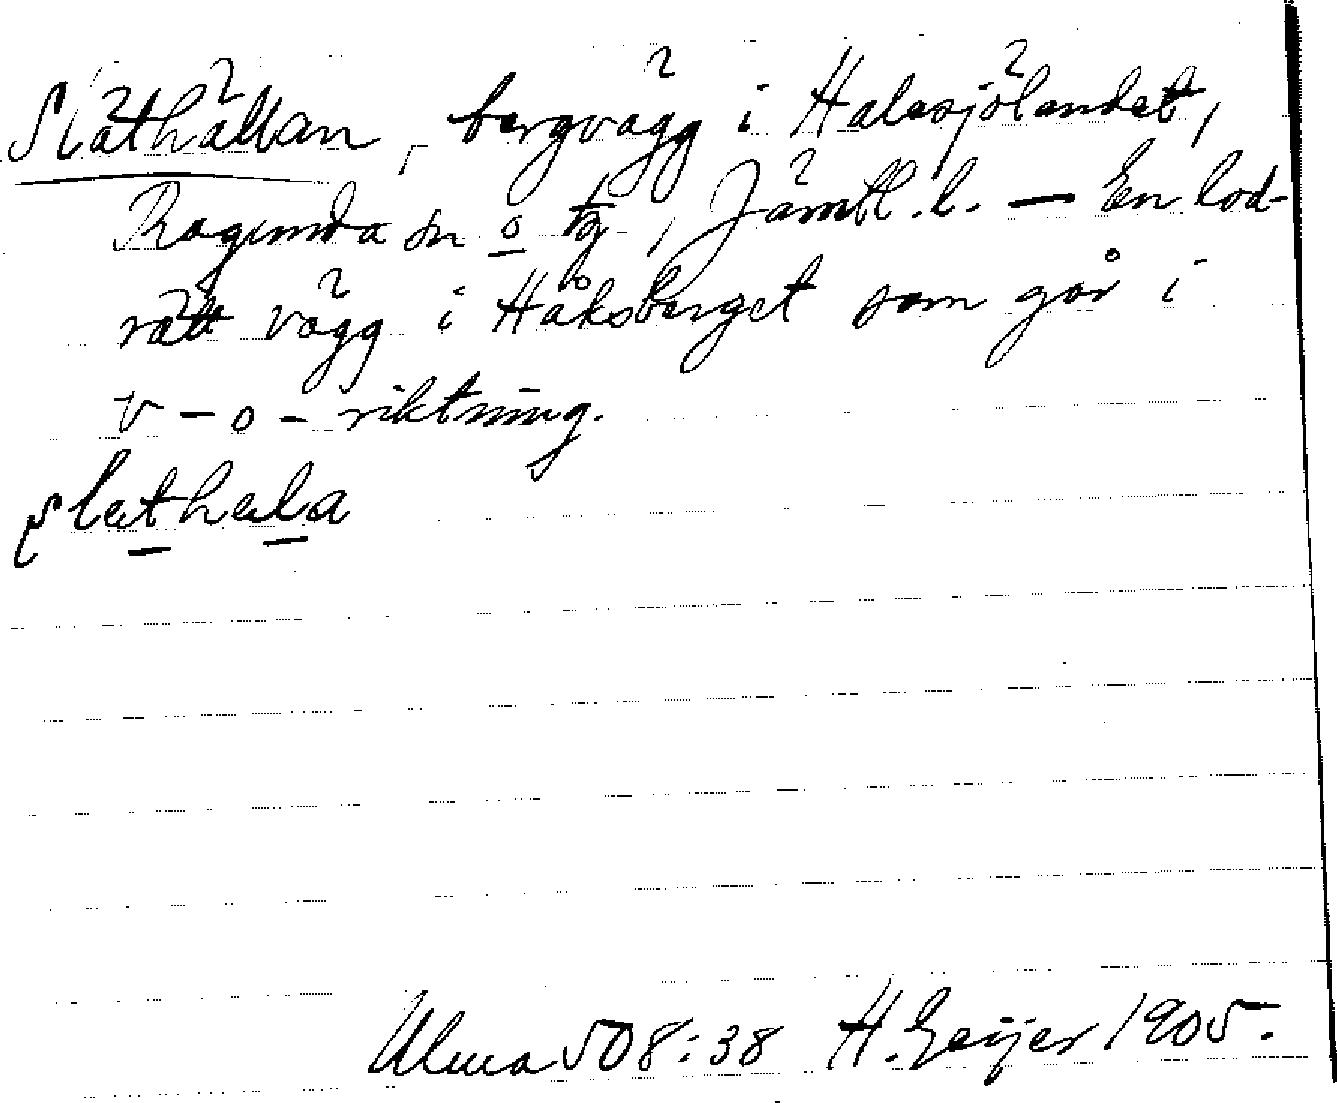 Släthällan, bergvägg i Halasjölandet,
Ragunda sn o tg, Jämtl. l. — En lod-
rätt vägg i Håksberget som går i
v - o - riktning.
slathala
Ulma 508:38 H. Geijer 1905.